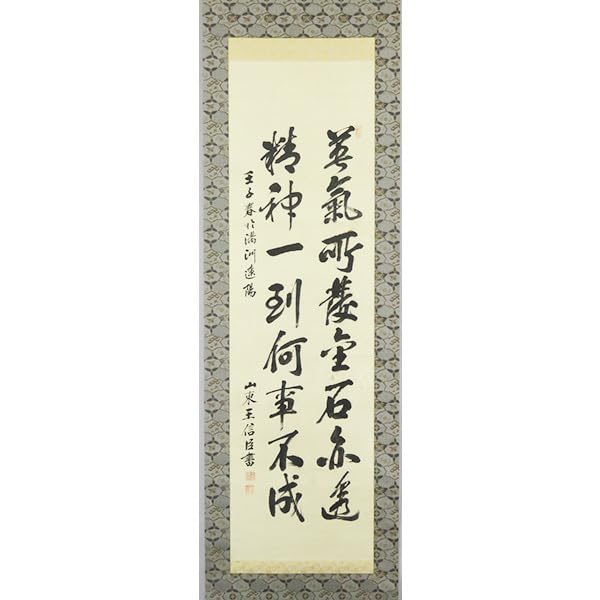 英氣所發金石亦透
精神一到何事不成
壬子春於満洲遼陽
山東王信臣書